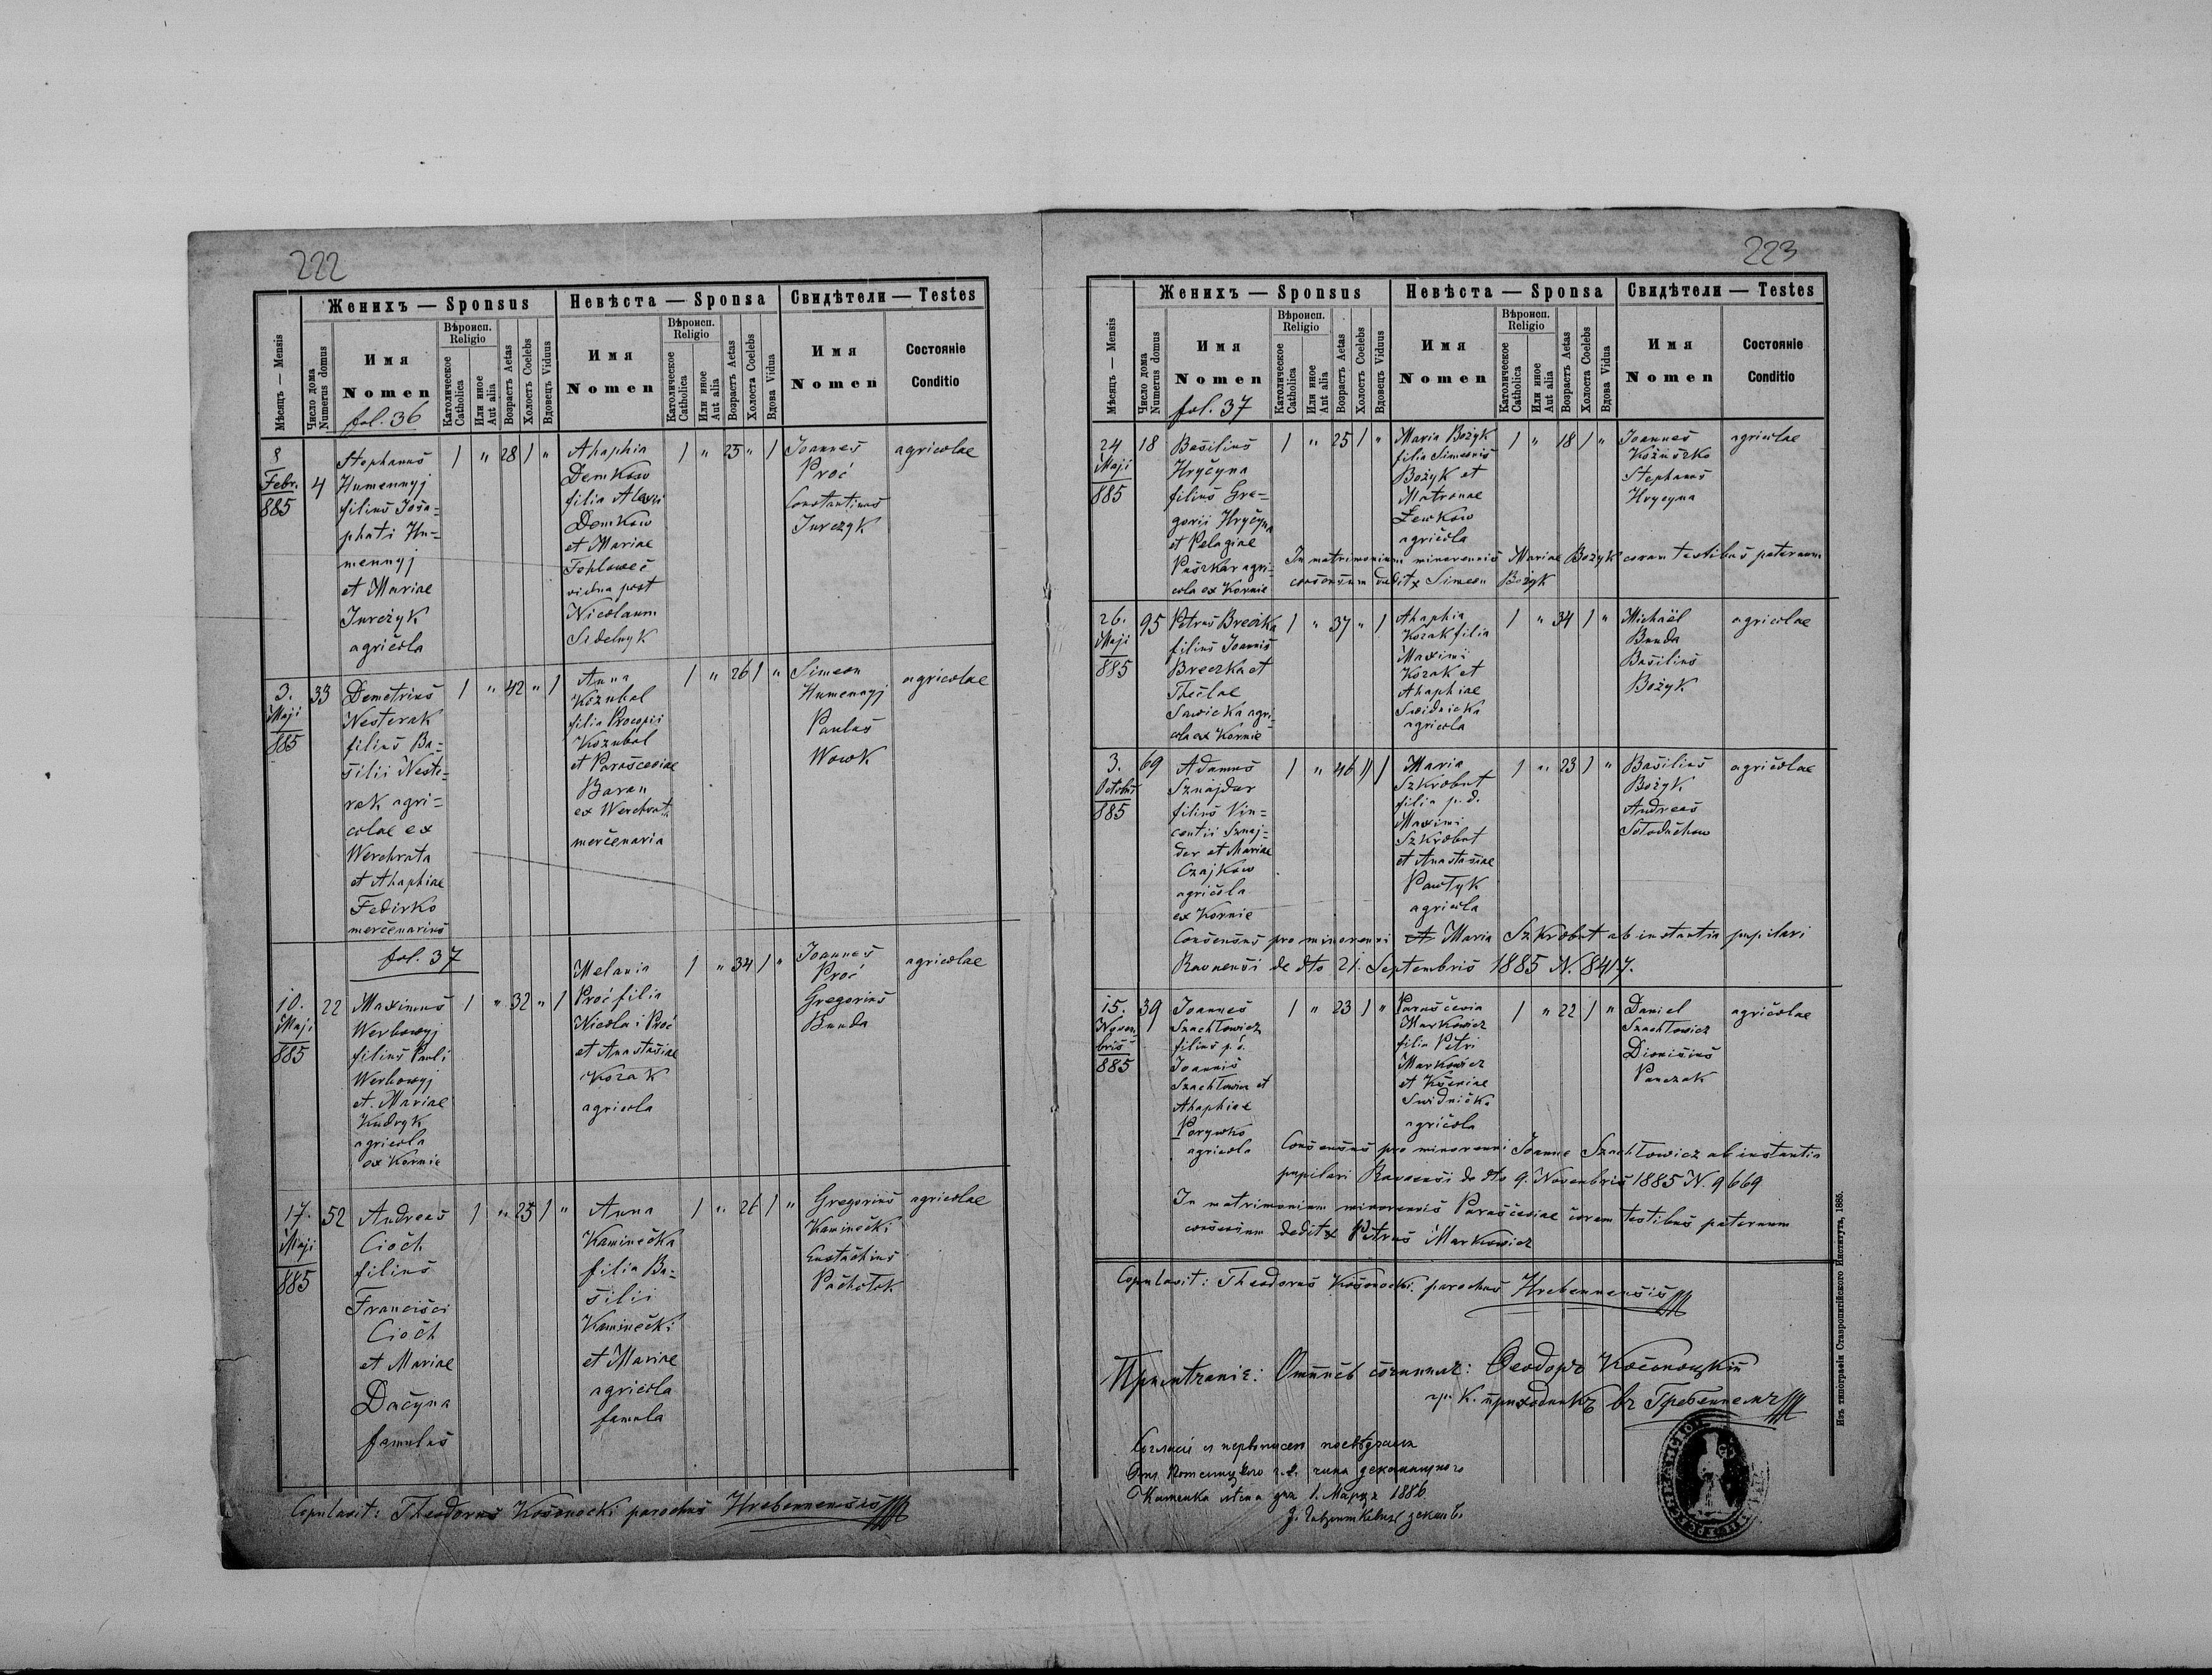 222
Женихъ — Sponsus
Невѣста — Sponsa
Свидѣтели — Testes
Мѣсяцъ — Mensis
Число дома
Numerus domus
Имя
Nomen
fol. 36
Вѣроисп.
Religio
Католическое
Catholica
Или иное
Aut alia
Возрастъ Aetas
Холостъ Coelebs
Вдовецъ Viduus
Имя
Nomen
Вѣроисп.
Religio
Католическое
Catholica
Или иное
Aut alia
Возрастъ Aetas
Холоста Coelebs
Вдова Vidua
Имя
Nomen
Состояніе
Conditio
8
Febr.
885
4
Stephanus
Humennyj
filius Josa-
phati Hu-
mennyj
et Mariae
Jurczyk
agricola
1 " 28 1 "
Ahaphia
Demkow
filia Alexii
Demkow
et Mariae
vidua post
Nicolaum
Sidelnyk
1 " 25 " 1
Joannes
Proć
Constantinus
Jurczyk
agricolae
3.
Maji
885
33
Demetrius
Nesterak
filius Ba-
silii Neste-
rak agri-
colae ex
Werchrata
et Ahaphiae
Fedirko
mercenarius
1 " 42 " 1
Anna
Kozubal
filia Procopii
Kozubal
et Parasceviae
Baran
ex Werchrata
mercenaria
1 " 26 1 "
Simeon
Humennyj
Paulus
Wowk
agricolae
fol. 37
10.
Maji
885
22
Maximus
Werbowyj
filius Pauli
Werbowyj
et Mariae
Kudryk
agricola
ex Kornie
1 " 32 " 1
Melania
Proć filia
Nicolai Proć
et Anastasiae
Kozak
agricola
1 " 34 1 "
Joannes
Proć
Gregorius
Bunda
agricolae
17.
Maji
885
52
Andreas
Cioch
filius
Francisci
Cioch
et Mariae
Dacyna
famulus
1 " 25 1 "
Anna
Kaminecka
filia Ba-
silii
Kaminecki
et Mariae
agricola
famula
1 " 26 1 "
Gregorius
Kaminecki
Eustachius
Pacholok
agricolae
Copulavit: Theodorus Kosonocki parochus Hrebennensis
223
Женихъ — Sponsus
Невѣста — Sponsa
Свидѣтели — Testes
Мѣсяцъ — Mensis
Число дома
Numerus domus
Имя
Nomen
fol. 37
Вѣроисп.
Religio
Католическое
Catholica
Или иное
Aut alia
Возрастъ Aetas
Холостъ Coelebs
Вдовецъ Viduus
Имя
Nomen
Вѣроисп.
Religio
Католическое
Catholica
Или иное
Aut alia
Возрастъ Aetas
Холоста Coelebs
Вдова Vidua
Имя
Nomen
Состояніе
Conditio
24
Maji
885
18
Basilius
Hrycyna
filius Gre-
gorii Hrycyna
et Pelagiae
Puszkar agri-
cola ex Kornie
1 " 25 1 "
Maria Bożyk
filia Simeonis
Bożyk et
Matronae
Lewkow
agricola
1 " 18 1 "
Joannes
Kożuszko
Stephanus
Hrycyna
agricolae
In matrimonium minorennis Mariae Bożyk coram testibus paternum
consensum dedit x Simeon Bożyk
26.
Maji
885
95
Petrus Breczka
filius Joannis
Breczka et
Theclae
Sawicka agri-
cola ex Kornie
1 " 37 " 1
Ahaphia
Kozak filia
Maximi
Kozak et
Ahaphiae
Swidnicka
agricola
1 " 34 1 "
Michaël
Bunda
Basilius
Bożyk
agricolae
3.
Octobris
885
69
Adamus
Sznajder
filius Vin-
centii Sznaj-
der et Mariae
Czajkow
agricola
ex Kornie
1 " 46 1
Maria
Szkrobut
filia p. d.
Maximi
Szkrobut
et Anastasiae
Pawłyk
agricola
1 " 23 1 "
Basilius
Bożyk
Andreas
Sołoduchow
agricolae
Consensus pro minorenni Maria Szkrobut ab instantia pupilari
Ravnensi de dto 21. Septembris 1885 N. 8417.
15.
Novem
bris
885
39
Joannes
Szachłowicz
filius p. d.
Joannis
Szachłowicz et
Ahaphiae
Porywko
agricola
1 " 23 1 "
Parascevia
Markowicz
filia Petri
Markowicz
et Kseniae
Swidnicka
agricola
1 " 22 1 "
Daniel
Szachłowicz
Dionisius
Panczak
agricolae
Consensus pro minorenni Joanne Szachłowicz ab instantia
pupilari Ravaensi de dto 9. Novembris 1885 N. 9669
In matrimonium minorennis Parasceviae coram testibus paternum
consensum dedit x Petrus Markowicz
Copulavit: Theodorus Kosonocki parochus Hrebennensis
Примѣчаніе: Ѳеодоръ Косоноцкій
гр. к. приходникъ въ Гребенномъ
1. Марта 1886
Изъ типографіи Ставропигійского Института, 1885.